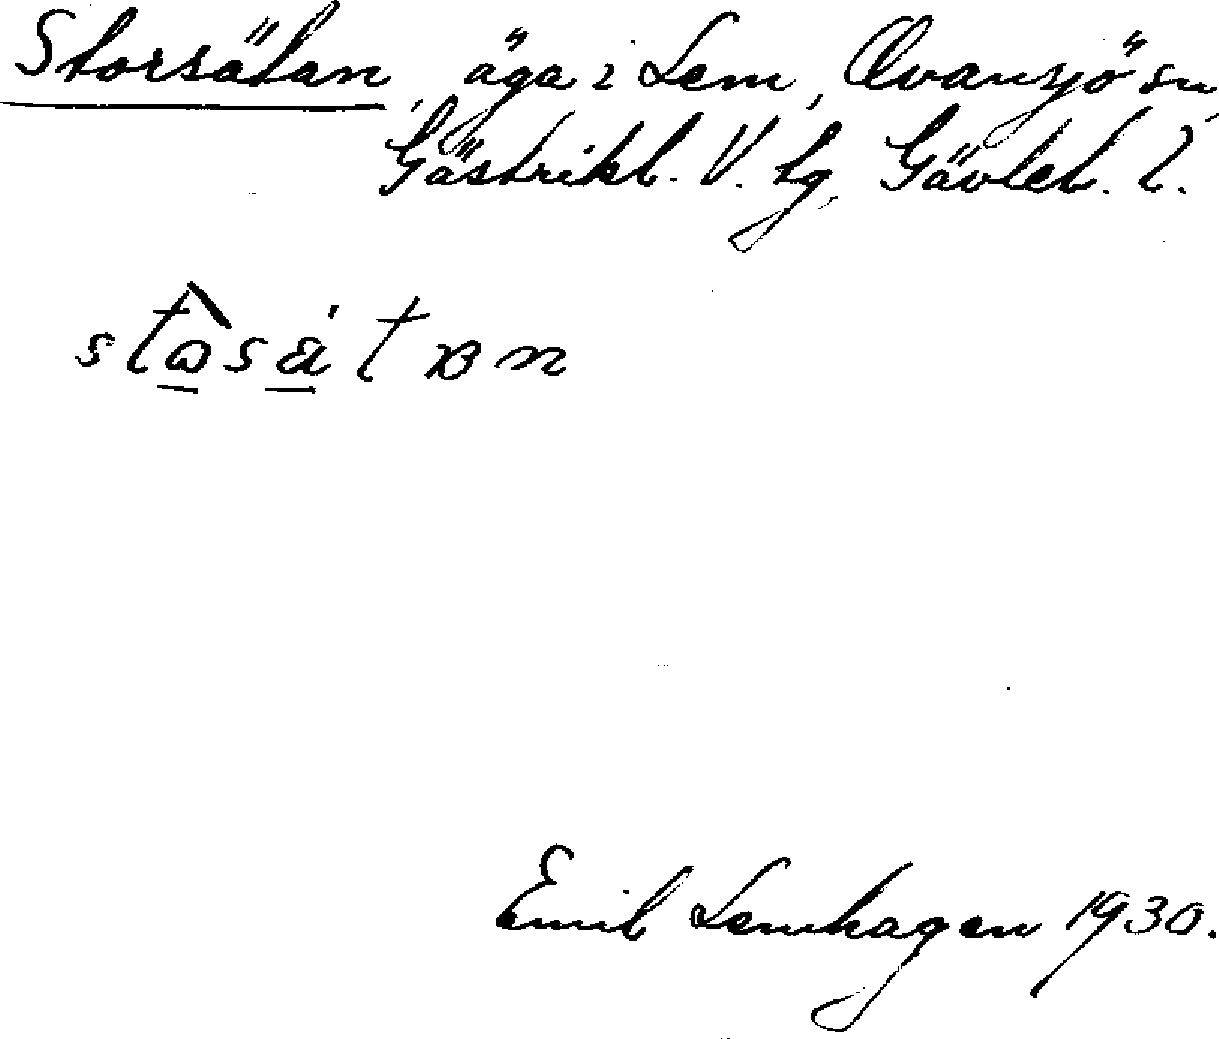 Storsätan, äga i Lem, Ovansjö sn,
Gästrikl. V. tg, Gävleb. l.
Emil Lemhagen 1930.